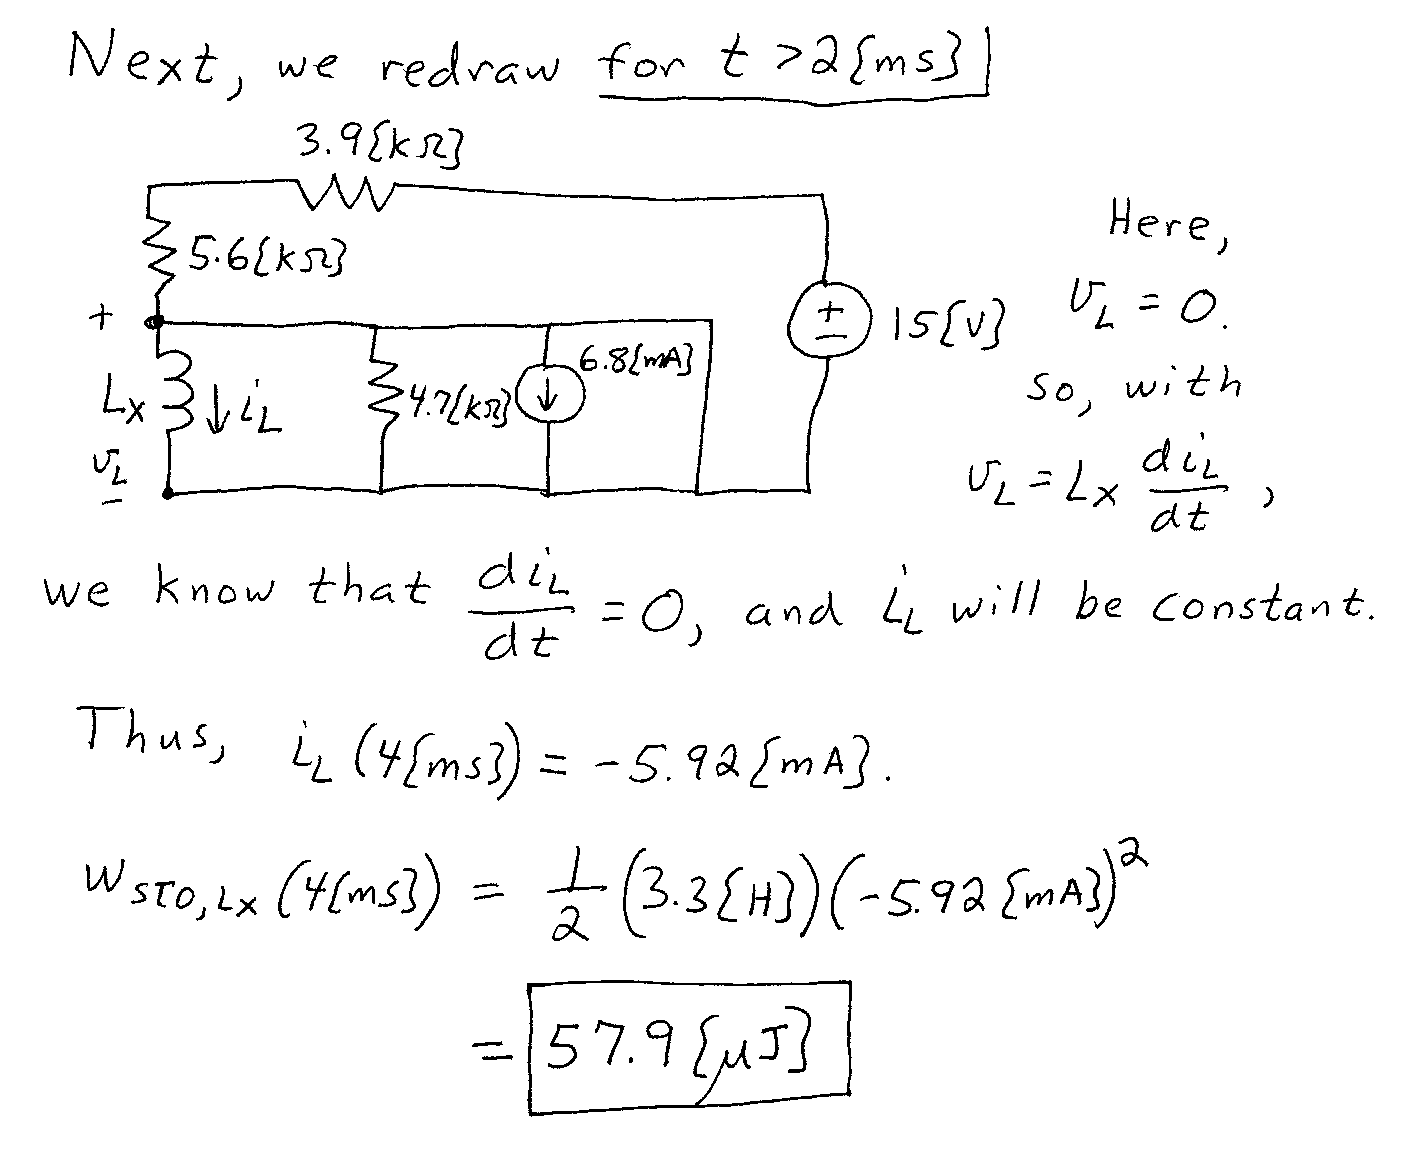 Next, we redraw for t > 2{ms}
3.9{kΩ}
5.6{kΩ}
Here,
+
+
−
15{V}
v_L = 0.
6.8{mA}
so, with
L_X
i_L
4.7{kΩ}
v_L
−
v_L = L_X di_L/dt ,
we know that di_L/dt = 0, and i_L will be constant.
Thus, i_L (4{ms}) = -5.92{mA}.
W_STO,LX (4{ms}) = 1/2 (3.3{H})(-5.92{mA})²
= 57.9{μJ}